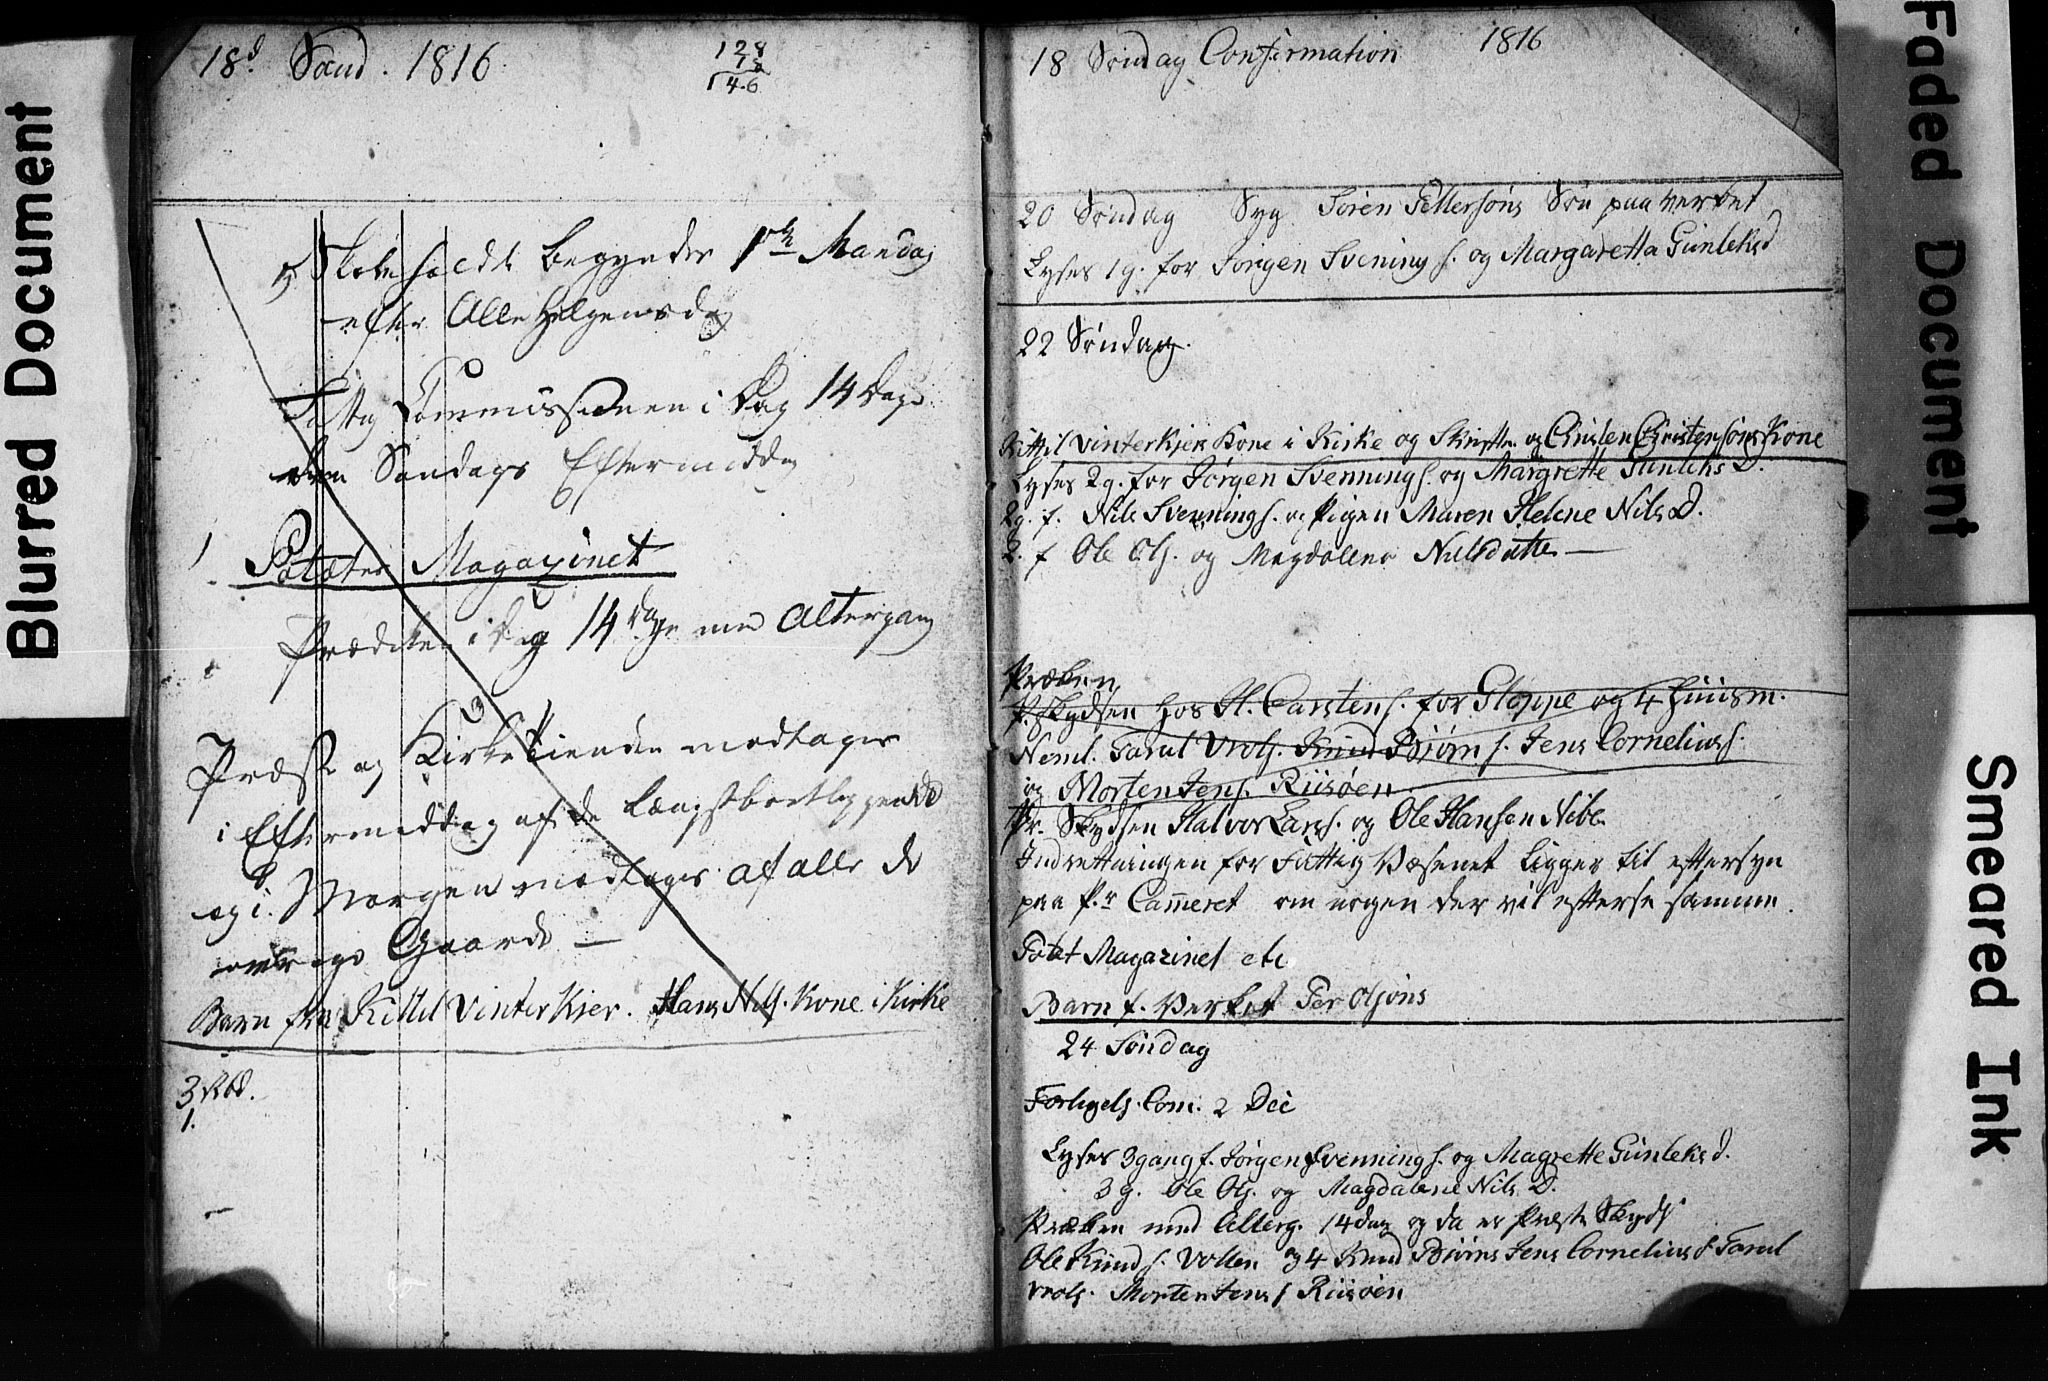 Blurred Document
18d. Sønd. 1816
128
18
146
Skolehold begyndes 1ste Mandag
efter Alle Helgensdag
Fattig Commissionen i Dag 14 Dage
den Søndags Eftermiddag
1 Potates Magazinet
Prædiken i Dag 14 Dage med Altergang
Præste og Kirketienden modtages
i Eftermiddag af de Længstbortliggende
og i Morgen modtages af alle de
øvrige Gaarde —
Barn fra Kittil Vinterkjer. Hans Nils. Kone i Kirke
3 Rbd.
1.
18 Søndag Confirmation 1816
20 Søndag Syg Søren Pettersøns Søn paa Verket
Lyses 1 g. for Jørgen Svenings. og Margaretta Gunleksd
22 Søndag.
Kittil Vinterkjers Kone i Kirke og Christen Christensøns Kone
Lyses 2 g. for Jørgen Svennings. og Margrette Gunleks D.
2 g. f. Nils Svennings. og Pigen Maren Helene Nils D.
2. f Ole Ols. og Magdalena Nilsdatter —
Præken
P. Skydsen hos H. Carstens. for Gloppe og 4 Huusm.
Neml. Tarul Vrols. Knud Bjørns. Jens Cornelius s.
og Morten Jens. Riisøen
Pr. Skydsen Halvor Lars. og Ole Hansen Nibe
Indretningen for Fattig Væsenet ligger til eftersyn
paa P.r Cammeret om nogen der vil efterse samme.
Potet Magazinet etc
Barn f. Verket Per Olsøns
24 Søndag
Forligels. Com. 2 Dec
Lyses 3 gang f. Jørgen Svennings. og Magrette Gunleks d.
3 g. Ole Ols. og Magdalene Nils D.
Præken med Alterg. 14 dag og da er Præste Skyds
Ole Knuds. Vollen og 4 Knud Biørns Jens Cornelius s Tarul
Vrols. Morten Jens s Riisøen
Faded Document
Smeared Ink